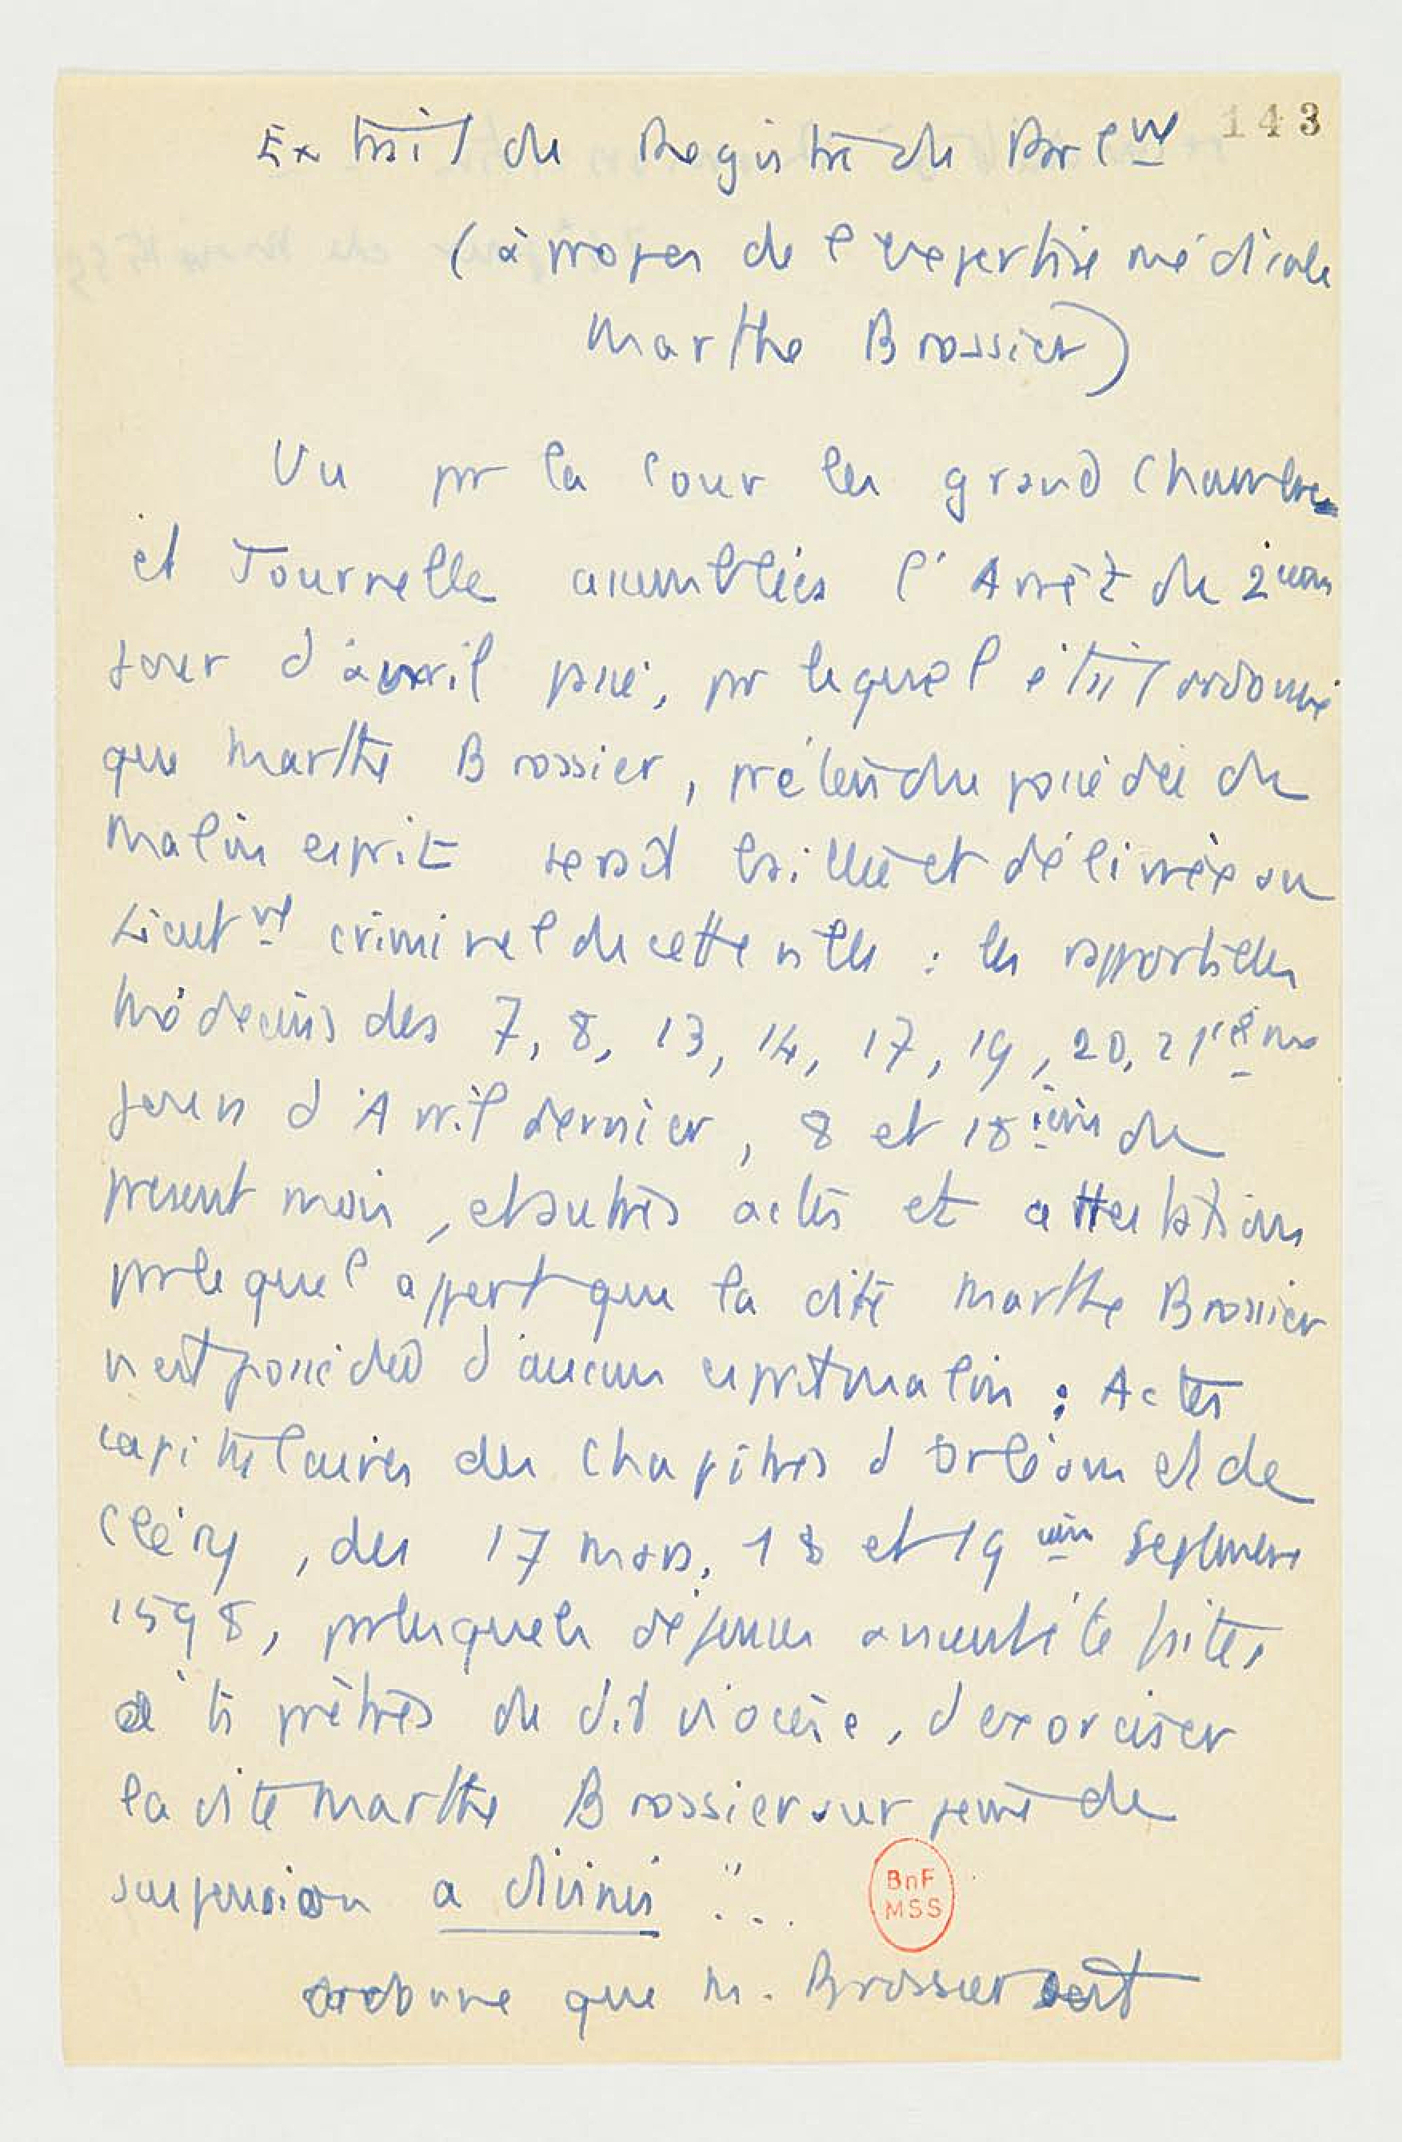 143
Extrait du Registre du Parl^nt
(à propos de l'expertise médicale
Marthe Brossier)
Vu par la Cour les grand Chambre
et Tournelle assemblées l'Arrêt du 2^ième
jour d'avril passé, par lequel était ordonné
que Marthe Brossier, prétendue possédée du
malin esprit serait baillée et délivrée au
Lieut^nt criminel de cette ville : les rapports des
médecins des 7, 8, 13, 14, 17, 19, 20, 21^ième
jours d'Avril dernier, 8 et 18^ième du
présent mois, et autres actes et attestations
par lequel appert que la dite Marthe Brossier
n'est possédée d'aucun esprit malin ; Actes
capitulaires des Chapitres d'Orléans et de
Cléry, des 17 mars, 18 et 19^ième Septembre
1598, par lesquels défenses auraient été faites
à ts prêtres du dit diocèse, d'exorciser
la dite Marthe Brossier sur peine de
suspension a divinis "...
BnF
MSS
ordonne que M. Brossier soit